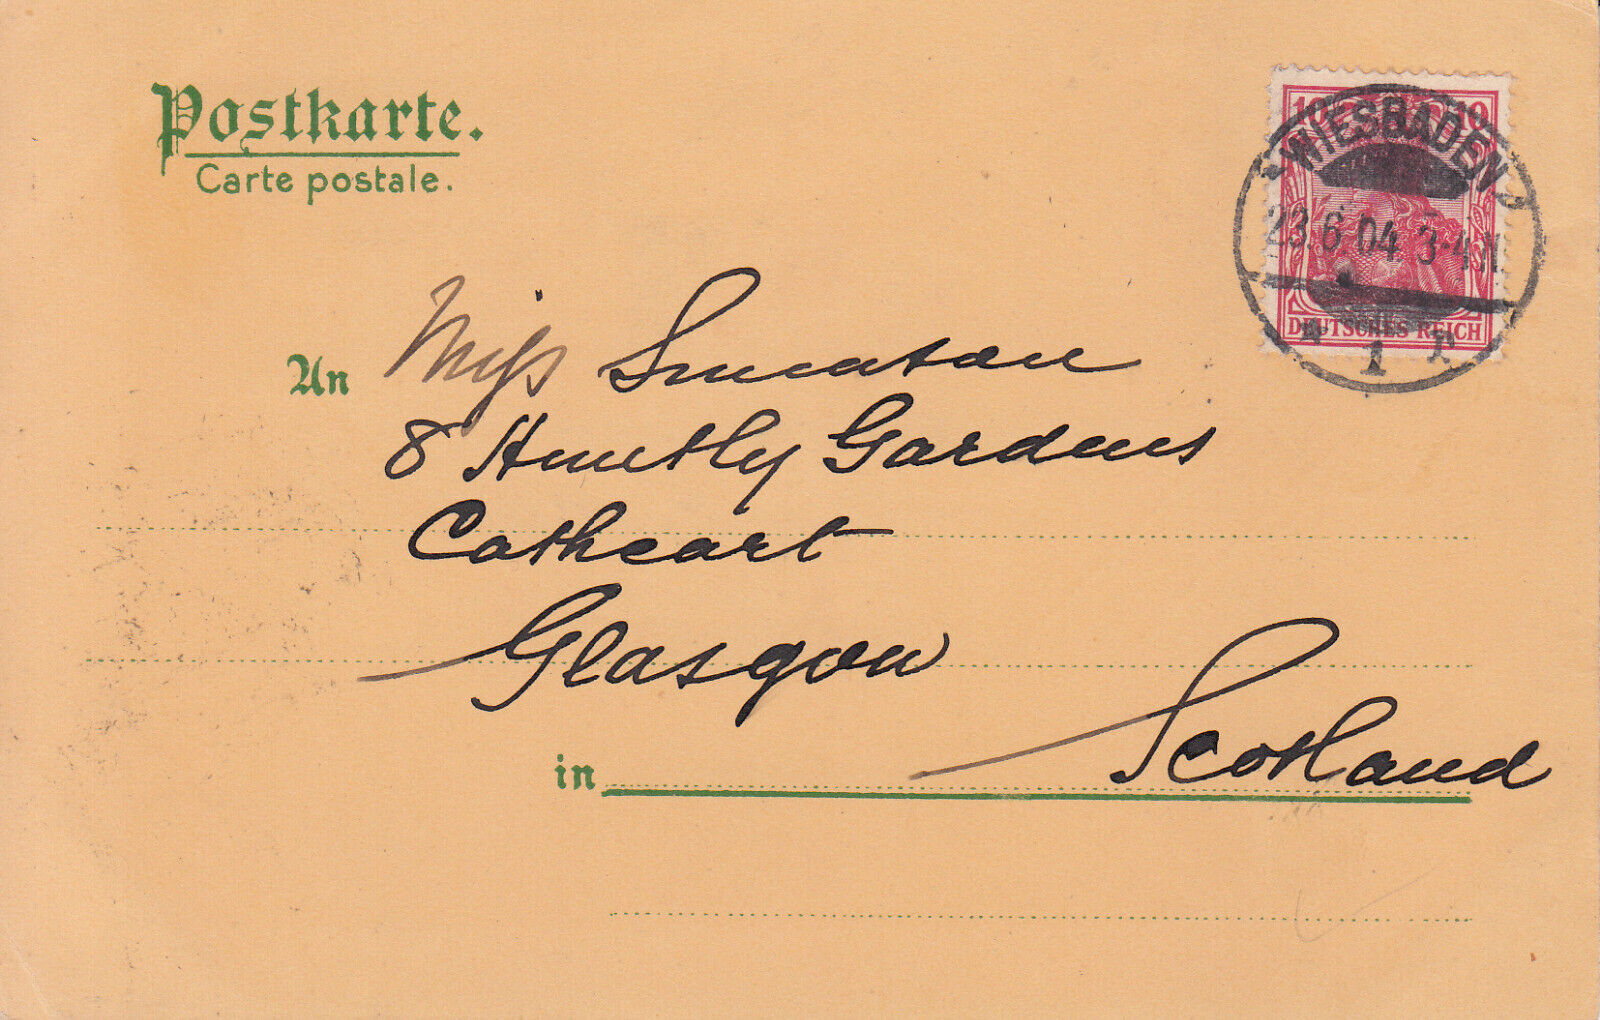 Postkarte.
Carte postale.
10 10
WIESBADEN
23.6.04 3-4 N
1
DEUTSCHES REICH
An Miss Smeaton
8 Huntly Gardens
Cathcart
Glasgow
in Scotland